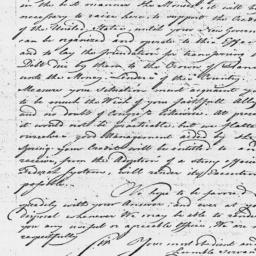 in the best manner the Monies, it will be
necessary to raise here, to support the Credit
of the United States, until your new Govern
can be organized and operate to this Effect
and to lay the foundation for transf
Debt due by them to the Crown of
into the Money-Lenders of this Country.
Measure your Situation must acquaint you
to be much the Wish of your faithfull All
and no doubt of Congress otherwise. At pres
it would not be practicable, but we flatter
ourselves good Management aided by the
Spring your Credit will be entitled to
receive, from the Adoption of a strong efficient
Federal System, will render its Execution
possible.
We hope to be favored
speedily with your Answer: and ever at your
disposal whenever We may be able to render
you any useful or agreeable Office. We are
respectfully
Sir Your most obedient and
humble Servan